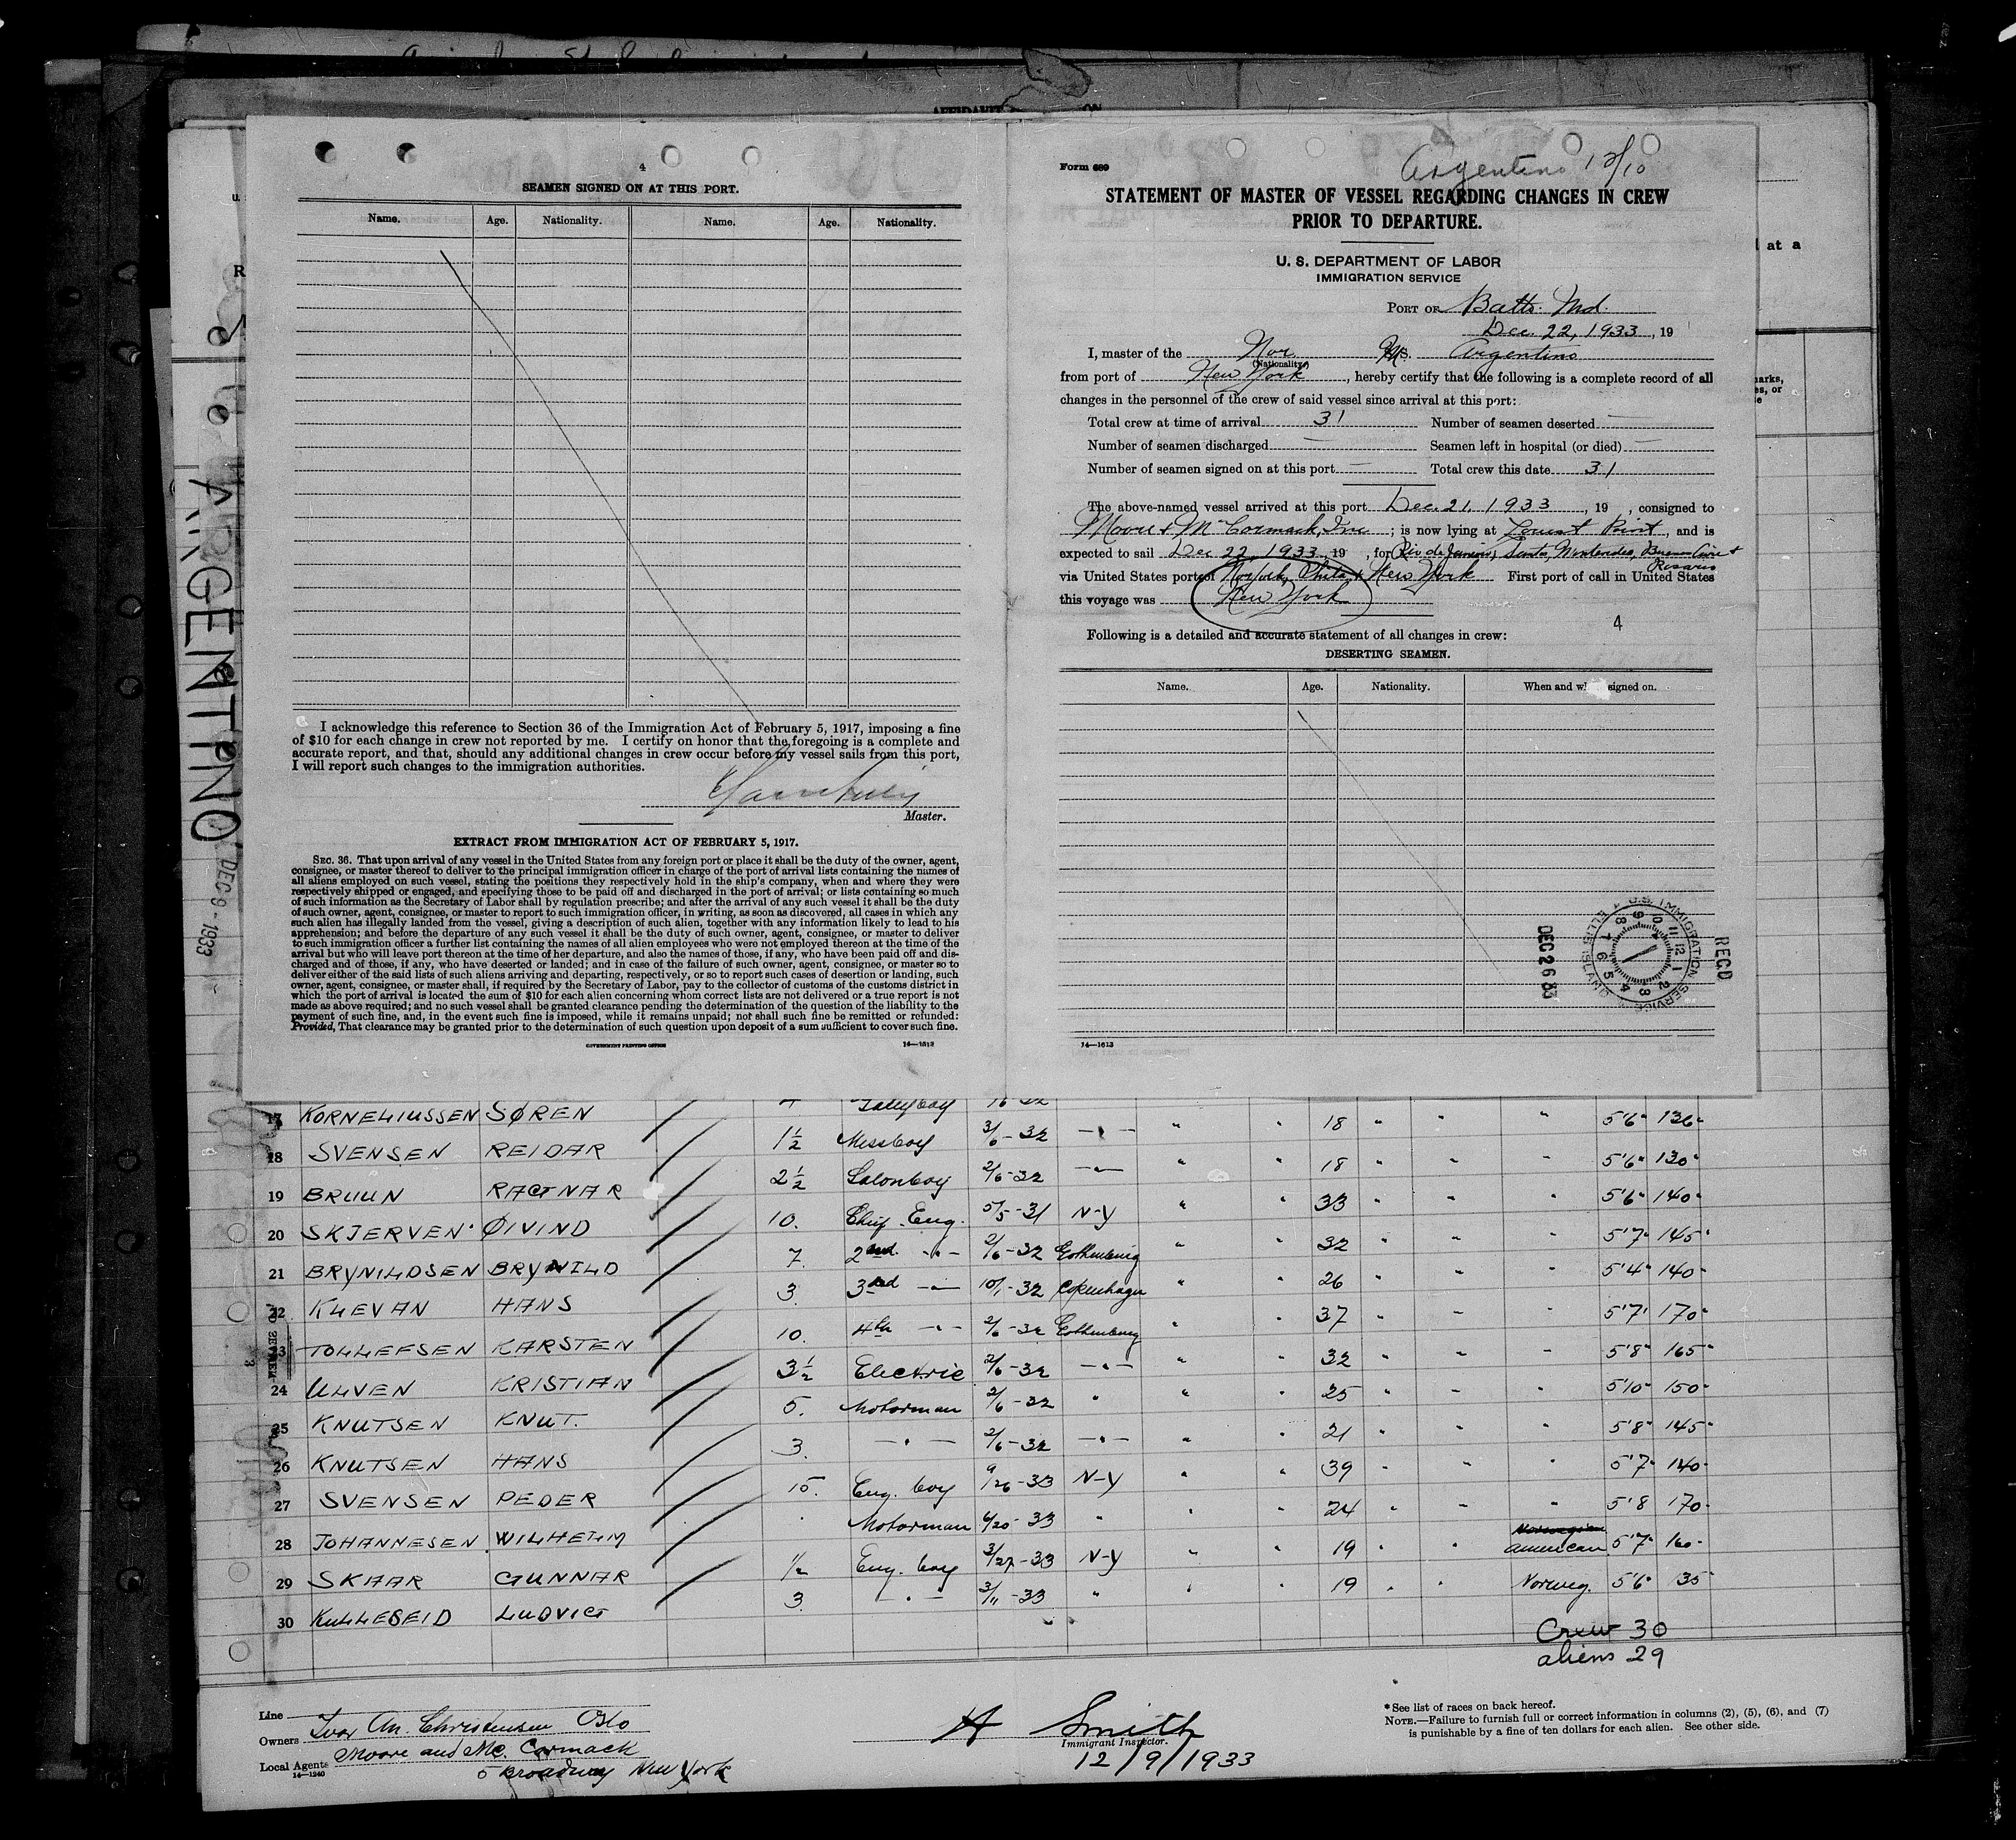 4
SEAMEN SIGNED ON AT THIS PORT.
Name. Age. Nationality. Name. Age. Nationality.
I acknowledge this reference to Section 36 of the Immigration Act of February 5, 1917, imposing a fine
of $10 for each change in crew not reported by me. I certify on honor that the foregoing is a complete and
accurate report, and that, should any additional changes in crew occur before my vessel sails from this port,
I will report such changes to the immigration authorities.
Master.
EXTRACT FROM IMMIGRATION ACT OF FEBRUARY 5, 1917.
SEC. 36. That upon arrival of any vessel in the United States from any foreign port or place it shall be the duty of the owner, agent,
consignee, or master thereof to deliver to the principal immigration officer in charge of the port of arrival lists containing the names of
all aliens employed on such vessel, stating the positions they respectively hold in the ship's company, when and where they were
respectively shipped or engaged, and specifying those to be paid off and discharged in the port of arrival; or lists containing so much
of such information as the Secretary of Labor shall by regulation prescribe; and after the arrival of any such vessel it shall be the duty
of such owner, agent, consignee, or master to report to such immigration officer, in writing, as soon as discovered, all cases in which any
such alien has illegally landed from the vessel, giving a description of such alien, together with any information likely to lead to his
apprehension; and before the departure of any such vessel it shall be the duty of such owner, agent, consignee, or master to deliver
to such immigration officer a further list containing the names of all alien employees who were not employed thereon at the time of the
arrival but who will leave port thereon at the time of her departure, and also the names of those, if any, who have been paid off and dis-
charged and of those, if any, who have deserted or landed; and in case of the failure of such owner, agent, consignee, or master so to
deliver either of the said lists of such aliens arriving and departing, respectively, or so to report such cases of desertion or landing, such
owner, agent, consignee, or master shall, if required by the Secretary of Labor, pay to the collector of customs of the customs district in
which the port of arrival is located the sum of $10 for each alien concerning whom correct lists are not delivered or a true report is not
made as above required; and no such vessel shall be granted clearance pending the determination of the question of the liability to the
payment of such fine, and, in the event such fine is imposed, while it remains unpaid; nor shall such fine be remitted or refunded:
Provided, That clearance may be granted prior to the determination of such question upon deposit of a sum sufficient to cover such fine.
GOVERNMENT PRINTING OFFICE 14—1613
Form 689
Argentino 12/10
STATEMENT OF MASTER OF VESSEL REGARDING CHANGES IN CREW
PRIOR TO DEPARTURE.
U. S. DEPARTMENT OF LABOR
IMMIGRATION SERVICE
PORT OF Balto. Md.
Dec. 22, 1933, 19
I, master of the Nor. M.S. Argentino
(Nationality)
from port of New York, hereby certify that the following is a complete record of all
changes in the personnel of the crew of said vessel since arrival at this port:
Total crew at time of arrival 31 Number of seamen deserted —
Number of seamen discharged — Seamen left in hospital (or died) —
Number of seamen signed on at this port — Total crew this date 31
The above-named vessel arrived at this port Dec. 21, 1933, 19 , consigned to
Moore & McCormack, Inc ; is now lying at Locust Point, and is
expected to sail Dec 22, 1933, 19 , for Rio de Janeiro, Santos, Montevideo, Buenos Aires &
Rosario
via United States ports of Norfolk, Phila & New York First port of call in United States
this voyage was New York
4
Following is a detailed and accurate statement of all changes in crew:
DESERTING SEAMEN.
Name. Age. Nationality. When and where signed on.
REC'D
U.S. IMMIGRATION SERVICE ELLIS ISLAND
DEC 26 33
14—1613
ARGENTINO DEC -9 1933
17 KORNELIUSSEN SØREN Galleyboy
18 SVENSEN REIDAR 1½ Messboy 3/6-32 —"— " " 18 " " " 5'6" 136"
19 BRUUN RAGNAR 2½ Salonboy 2/6-32 —"— " " 18 " " " 5'6" 130"
20 SKJERVEN ØIVIND 10. Chief. Eng. 5/5-31 N-Y " " 33 " " " 5'6" 140"
21 BRYNILDSEN BRYNILD 7. 2nd —"— 2/6-32 Gothenburg " " 32 " " " 5'7" 145"
22 KLEVAN HANS 3. 3rd —"— 10/1-32 Copenhagen " " 26 " " " 5'4" 140"
23 TOLLEFSEN KARSTEN 10. 4th —"— 2/6-32 Gothenburg " " 37 " " " 5'7" 170"
24 ULVEN KRISTIAN 3½ Electric 2/6-32 —"— " " 32 " " " 5'8" 165"
25 KNUTSEN KNUT. 5. Motorman 2/6-32 " " " 25 " " " 5'10" 150"
26 KNUTSEN HANS 3 —"— 2/6-32 —"— " " 21 " " " 5'8" 145"
27 SVENSEN PEDER 15. Eng. boy 9/26-33 N-Y " " 39 " " " 5'7" 140"
28 JOHANNESEN WILHELM " Motorman 6/20-33 " " " 24 " " " 5'8 170"
29 SKAAR GUNNAR ½ Eng. boy 3/27-33 N-Y " " 19 " " American 5'7" 160"
30 KULLESEID LUDVIG 3. —"— 3/11-33 " " " 19 " " Norweg. 5'6" 135"
Crew 30
aliens 29
Line
Owners Ivar An. Christensen Oslo
Local Agents Moore and Mc. Cormack
14—1240 5 Broadway New York
A Smith
Immigrant Inspector.
12/9/1933
* See list of races on back hereof.
NOTE.—Failure to furnish full or correct information in columns (2), (5), (6), and (7)
is punishable by a fine of ten dollars for each alien. See other side.